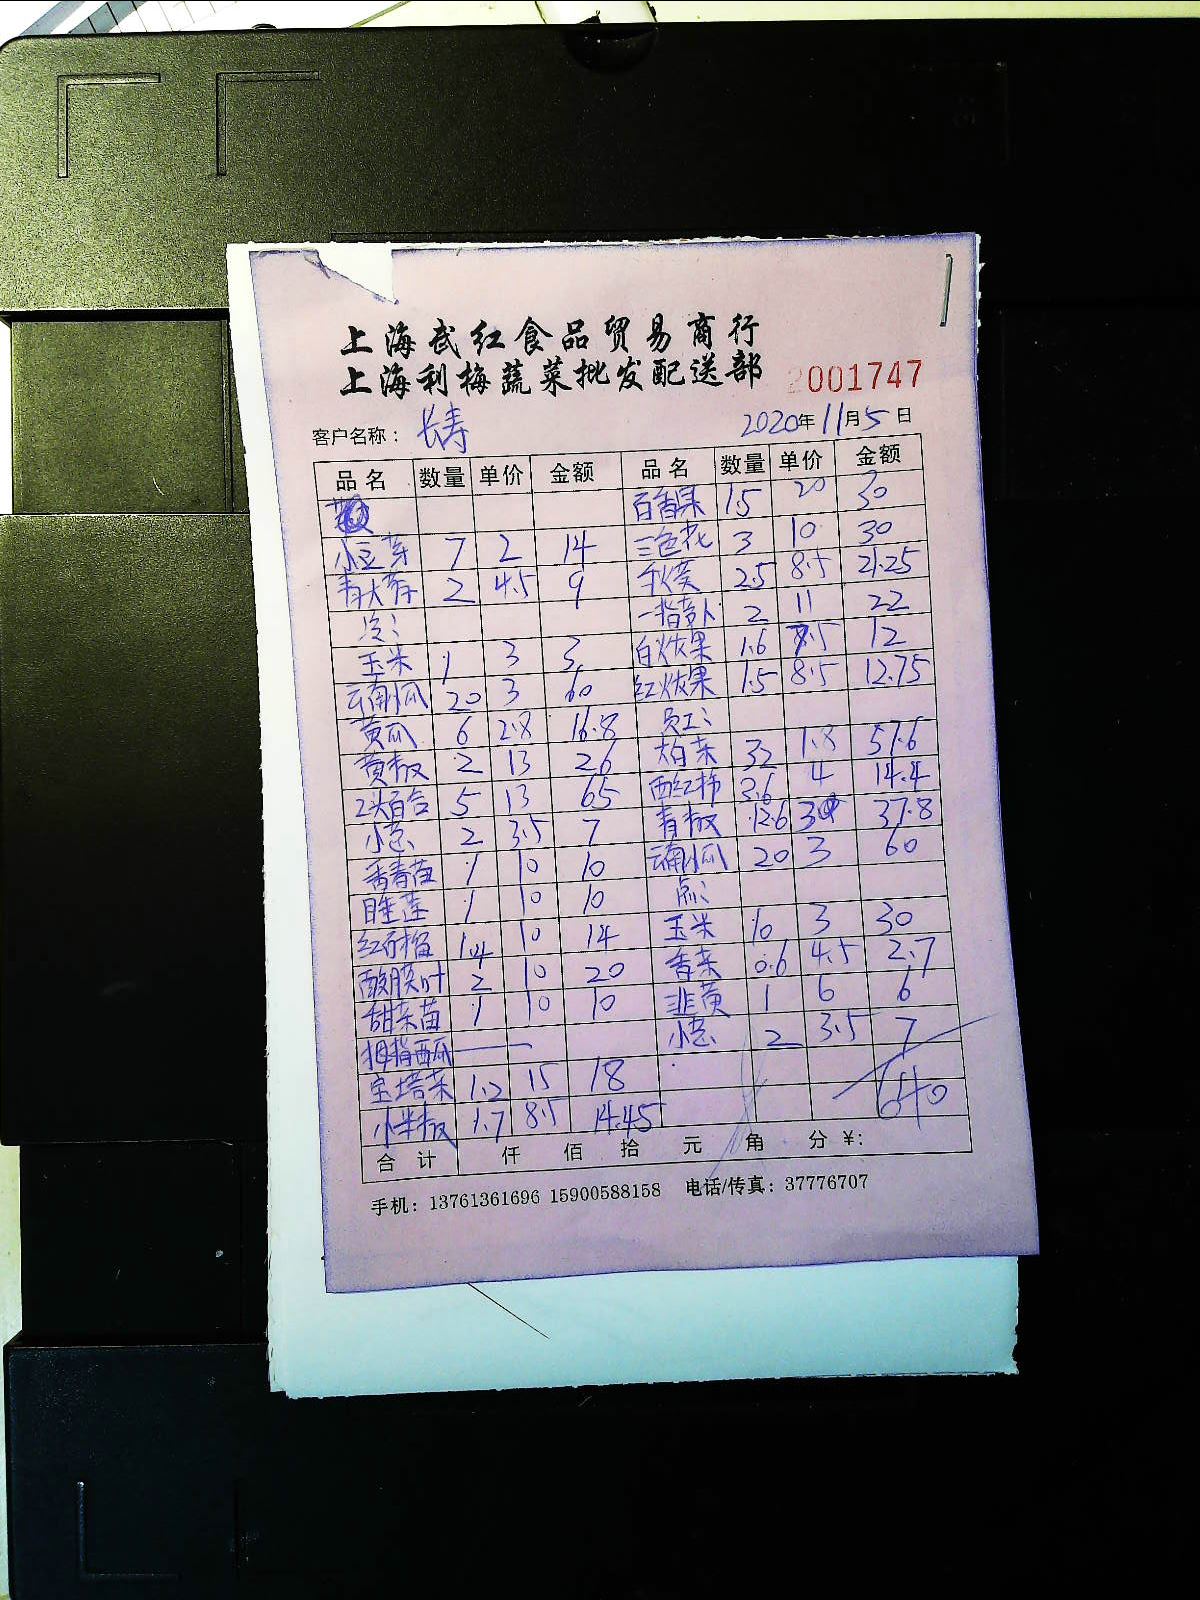 上海武红食品贸易商行
上海利梅蔬菜批发配送部 2001747
客户名称： 长寿 2020年11月5日
品名 数量 单价 金额 品名 数量 单价 金额
百香果 1.5 20 30
小豆芽 7 2 14 三色花 3 10 30
青大蒜 2 4.5 9 2.5 8.5 21.25
一指萝卜 2 11 22
玉米 1 3 3 白火龙果 1.6 7.5 12
云南小瓜 20 3 60 红火龙果 1.5 8.5 12.75
黄瓜 6 2.8 16.8 员工：
黄椒 2 13 26 大白菜 32 1.8 57.6
2头百合 5 13 65 西红柿 3.6 4 14.4
小葱 2 3.5 7 青椒 12.6 3 37.8
1 10 10 云南小瓜 20 3 60
睡莲 1 10 10 点：
红石榴 1.4 10 14 玉米 10 3 30
酸膜叶 2 10 20 香菜 0.6 4.5 2.7
甜菜苗 1 10 10 韭黄 1 6 6
拇指西瓜 小葱 2 3.5 7
宝塔菜 1.2 15 18
小米椒 1.7 8.5 14.45 640
合计 仟 佰 拾 元 角 分 ¥:
手机：13761361696 15900588158 电话/传真：37776707